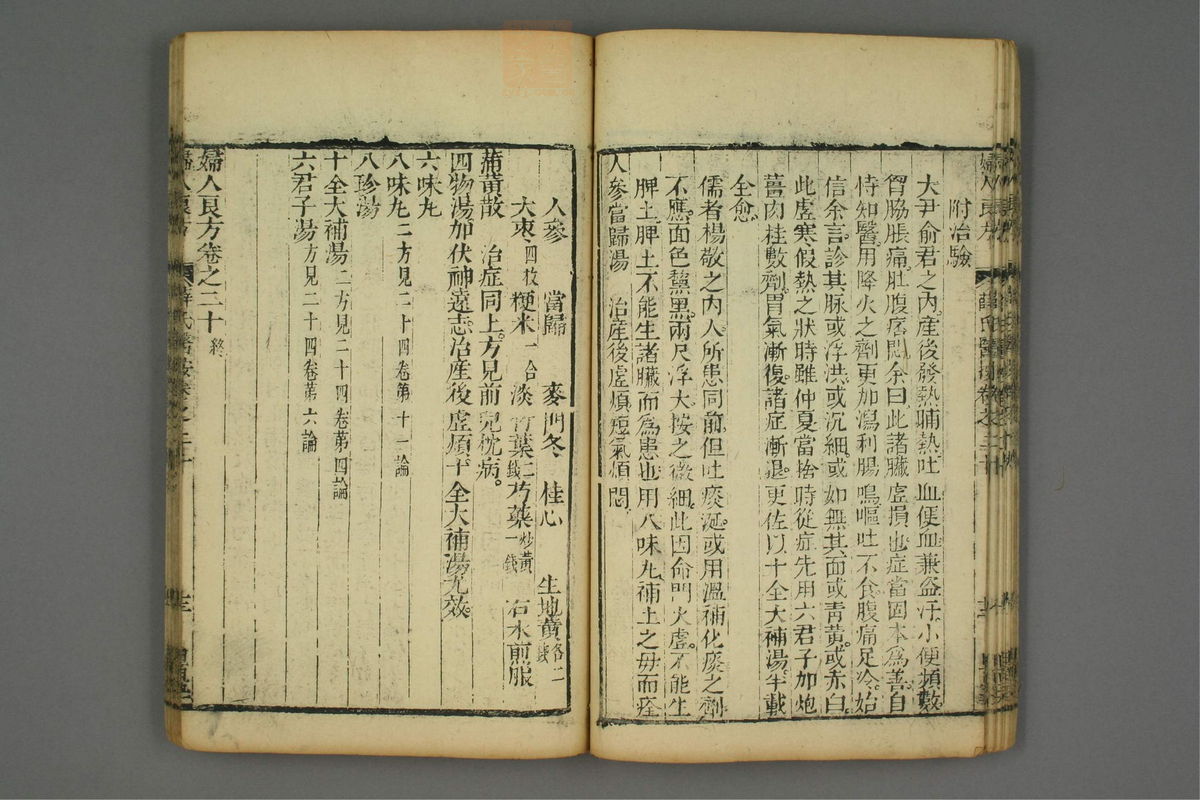 附治驗
大尹俞君之內産後發熱晡熱吐血便血兼盜汗小便頻數
胷脇脹痛肚腹痞悶余曰此諸臟虛損也症當固本為善自
恃知醫用降火之劑更加瀉利腸鳴嘔吐不食腹痛足冷始
信余言診其脉或浮洪或沉細或如無其面或靑黃或赤白
此虛寒假熱之狀時雖仲夏當捨時從症先用六君子加炮
薑肉桂數劑胃氣漸復諸症漸退更佐以十全大補湯半載
全愈
儒者楊敬之內人所患同前但吐痰涎或用溫補化痰之劑
不應面色黧黑兩尺浮大按之微細此因命門火虛不能生
脾土脾土不能生諸臟而為患也用八味丸補土之母而痊
人參當歸湯 治産後虛煩短氣煩悶
人參 當歸 麥門冬 桂心 生地黃各二錢
大棗四枚 粳米一合 淡竹葉二錢 芍藥炒黃一錢 右水煎服
蒲黃散 治症同上。方見前兒枕病。
四物湯加伏神遠志治産後虛煩十全大補湯尤效
六味丸
八味丸二方見二十四卷第十一論
八珍湯
十全大補湯二方見二十四卷第四論
六君子湯方見二十四卷第六論
婦人良方卷之二十 終